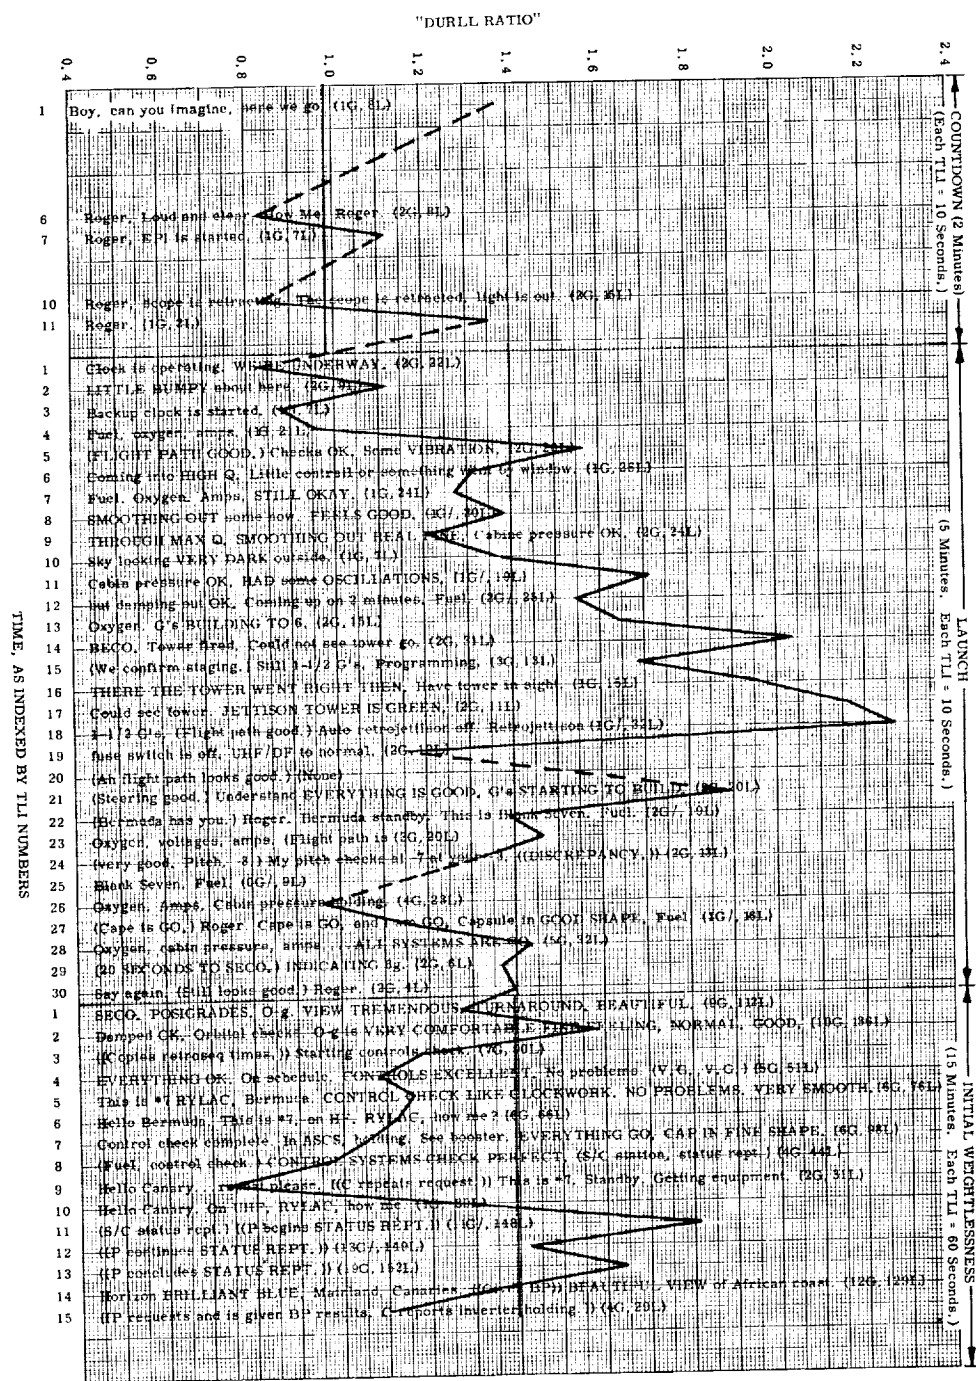 "DURLL RATIO"
0.4 0.6 0.8 1.0 1.2 1.4 1.6 1.8 2.0 2.2 2.4
COUNTDOWN (2 Minutes)
(Each TLI = 10 Seconds.)
1 Boy, can you imagine, here we go. (1G, 8L)
6 Roger, Loud and clear. How Me. Roger. (2G, 8L)
7 Roger, EPI is started. (1G, 7L)
10 Roger, Scope is retracting. The scope is retracted, light is out. (2G, 15L)
11 Roger. (1G, 2L)
LAUNCH
(5 Minutes. Each TLI = 10 Seconds.)
1 Clock is operating. UNDERWAY. (2G, 22L)
2 LITTLE BUMPY about here. (2G, 9L)
3 Backup clock is started. 7L)
4 Fuel, oxygen, amps. (1G, 21L)
5 (FLIGHT PATH GOOD.) Checks OK, Some VIBRATION, (2G,
6 Coming into HIGH Q, Little contrail or something went by window. (1G, 26L)
7 Fuel. Oxygen. Amps, STILL OKAY. (1G, 24L)
8 SMOOTHING OUT some now. FEELS GOOD. (1G/, 30L)
9 THROUGH MAX Q, SMOOTHING OUT REAL FINE, Cabine pressure OK. (2G, 24L)
10 Sky looking VERY DARK outside. (1G, 7L)
11 Cabin pressure OK. HAD some OSCILLATIONS, (1G/, 19L)
12 but damping out OK. Coming up on 2 minutes, Fuel. (2G/, 25L)
13 Oxygen. G's BUILDING TO 6. (2G, 15L)
14 BECO. Tower fired. Could not see tower go. (2G, 31L)
15 (We confirm staging.) Still 1-1/2 G's, Programming, (3G, 13L)
16 THERE THE TOWER WENT RIGHT THEN, Have tower in sight. (1G, 15L)
17 Could see tower. JETTISON TOWER IS GREEN, (2G, 11L)
18 1-1/2 G's, (Flight path good.) Auto retrojettison off. Retrojettison (1G/, 32L)
19 fuse switch is off, UHF/DF to normal. (2G, 12L)
20 (Ah flight path looks good.) (None)
21 (Steering good.) Understand EVERYTHING IS GOOD, G's STARTING TO BUILD
22 (Bermuda has you.) Roger. Bermuda standby. This is Blank Seven. Fuel. (2G/, 19L)
23 Oxygen, voltages, amps. (Flight path is (3G, 20L)
24 (very good, Pitch, -8.) My pitch checks at -7 at your ((DISCREPANCY.)) (2G, 13L)
25 Blank Seven, Fuel. (0G/, 9L)
26 Oxygen, Amps, Cabin pressure holding. (4G, 23L)
27 (Cape is GO.) Roger. Cape is GO, and I am GO, Capsule in GOOD SHAPE, Fuel. (1G/, 16L)
28 Oxygen, cabin pressure, amps. ...ALL SYSTEMS ARE GO. (5G, 32L)
29 (20 SECONDS TO SECO.) INDICATING 6g. (2G, 6L)
30 Say again, (Still looks good.) Roger. (2G, 4L)
INITIAL WEIGHTLESSNESS
(15 Minutes. Each TLI = 60 Seconds.)
1 SECO. POSIGRADES, O-g. VIEW TREMENDOUS, TURNAROUND, BEAUTIFUL. (9G, 112L)
2 Damped OK. Orbital checks. O-g is VERY COMFORTABLE FEELING, NORMAL, GOOD, (10G, 136L)
3 ((Copies retroseq times.)) Starting controls check. (7G,
4 EVERYTHING OK. On schedule. CONTROLS EXCELLENT. No problems. (V.G., V.G.) (5G, 51L)
5 This is *7 RYLAC, Bermuda. CONTROL CHECK LIKE CLOCKWORK. NO PROBLEMS, VERY SMOOTH, (6G, 76L)
6 Hello Bermuda, This is *7, on HF. RYLAC, how me? (6G, 66L)
7 Control check complete. In ASCS, holding. See booster. EVERYTHING GO, CAP IN FINE SHAPE, (6G, 98L)
8 (Fuel, control check.) CONTROL SYSTEMS CHECK PERFECT, (S/C station, status rept.) (4G, 44L)
9 Hello Canary... please. ((C repeats request.)) This is *7. Standby. Getting equipment. (2G, 31L)
10 Hello Canary, On UHF, RYLAC, how me.
11 (S/C status rept.) ((P begins STATUS REPT.)) (11G/, 148L)
12 ((P continues STATUS REPT.)) (13G/, 149L)
13 ((P concludes STATUS REPT.)) (9G, 152L)
14 Horizon BRILLIANT BLUE, Mainland, Canaries, BP)) BEAUTIFUL VIEW of African coast. (12G, 129L)
15 ((P requests and is given BP results, C reports inverter holding.)) (4G, 29L)
TIME, AS INDEXED BY TLI NUMBERS